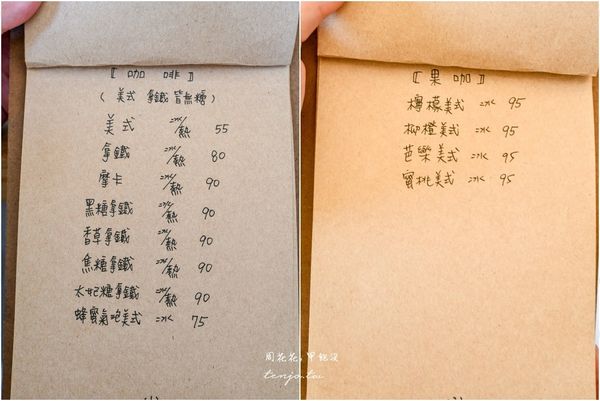 〖咖啡〗
(美式 拿鐵 皆無糖)
美式 冰/熱 55
拿鐵 冰/熱 80
摩卡 冰/熱 90
黑糖拿鐵 冰/熱 90
香草拿鐵 冰/熱 90
焦糖拿鐵 冰/熱 90
太妃糖拿鐵 冰/熱 90
蜂蜜氣泡美式 冰 75
〖果咖〗
檸檬美式 冰 95
柳橙美式 冰 95
芭樂美式 冰 95
蜜桃美式 冰 95
周花花,甲飽沒
tenjo.tw